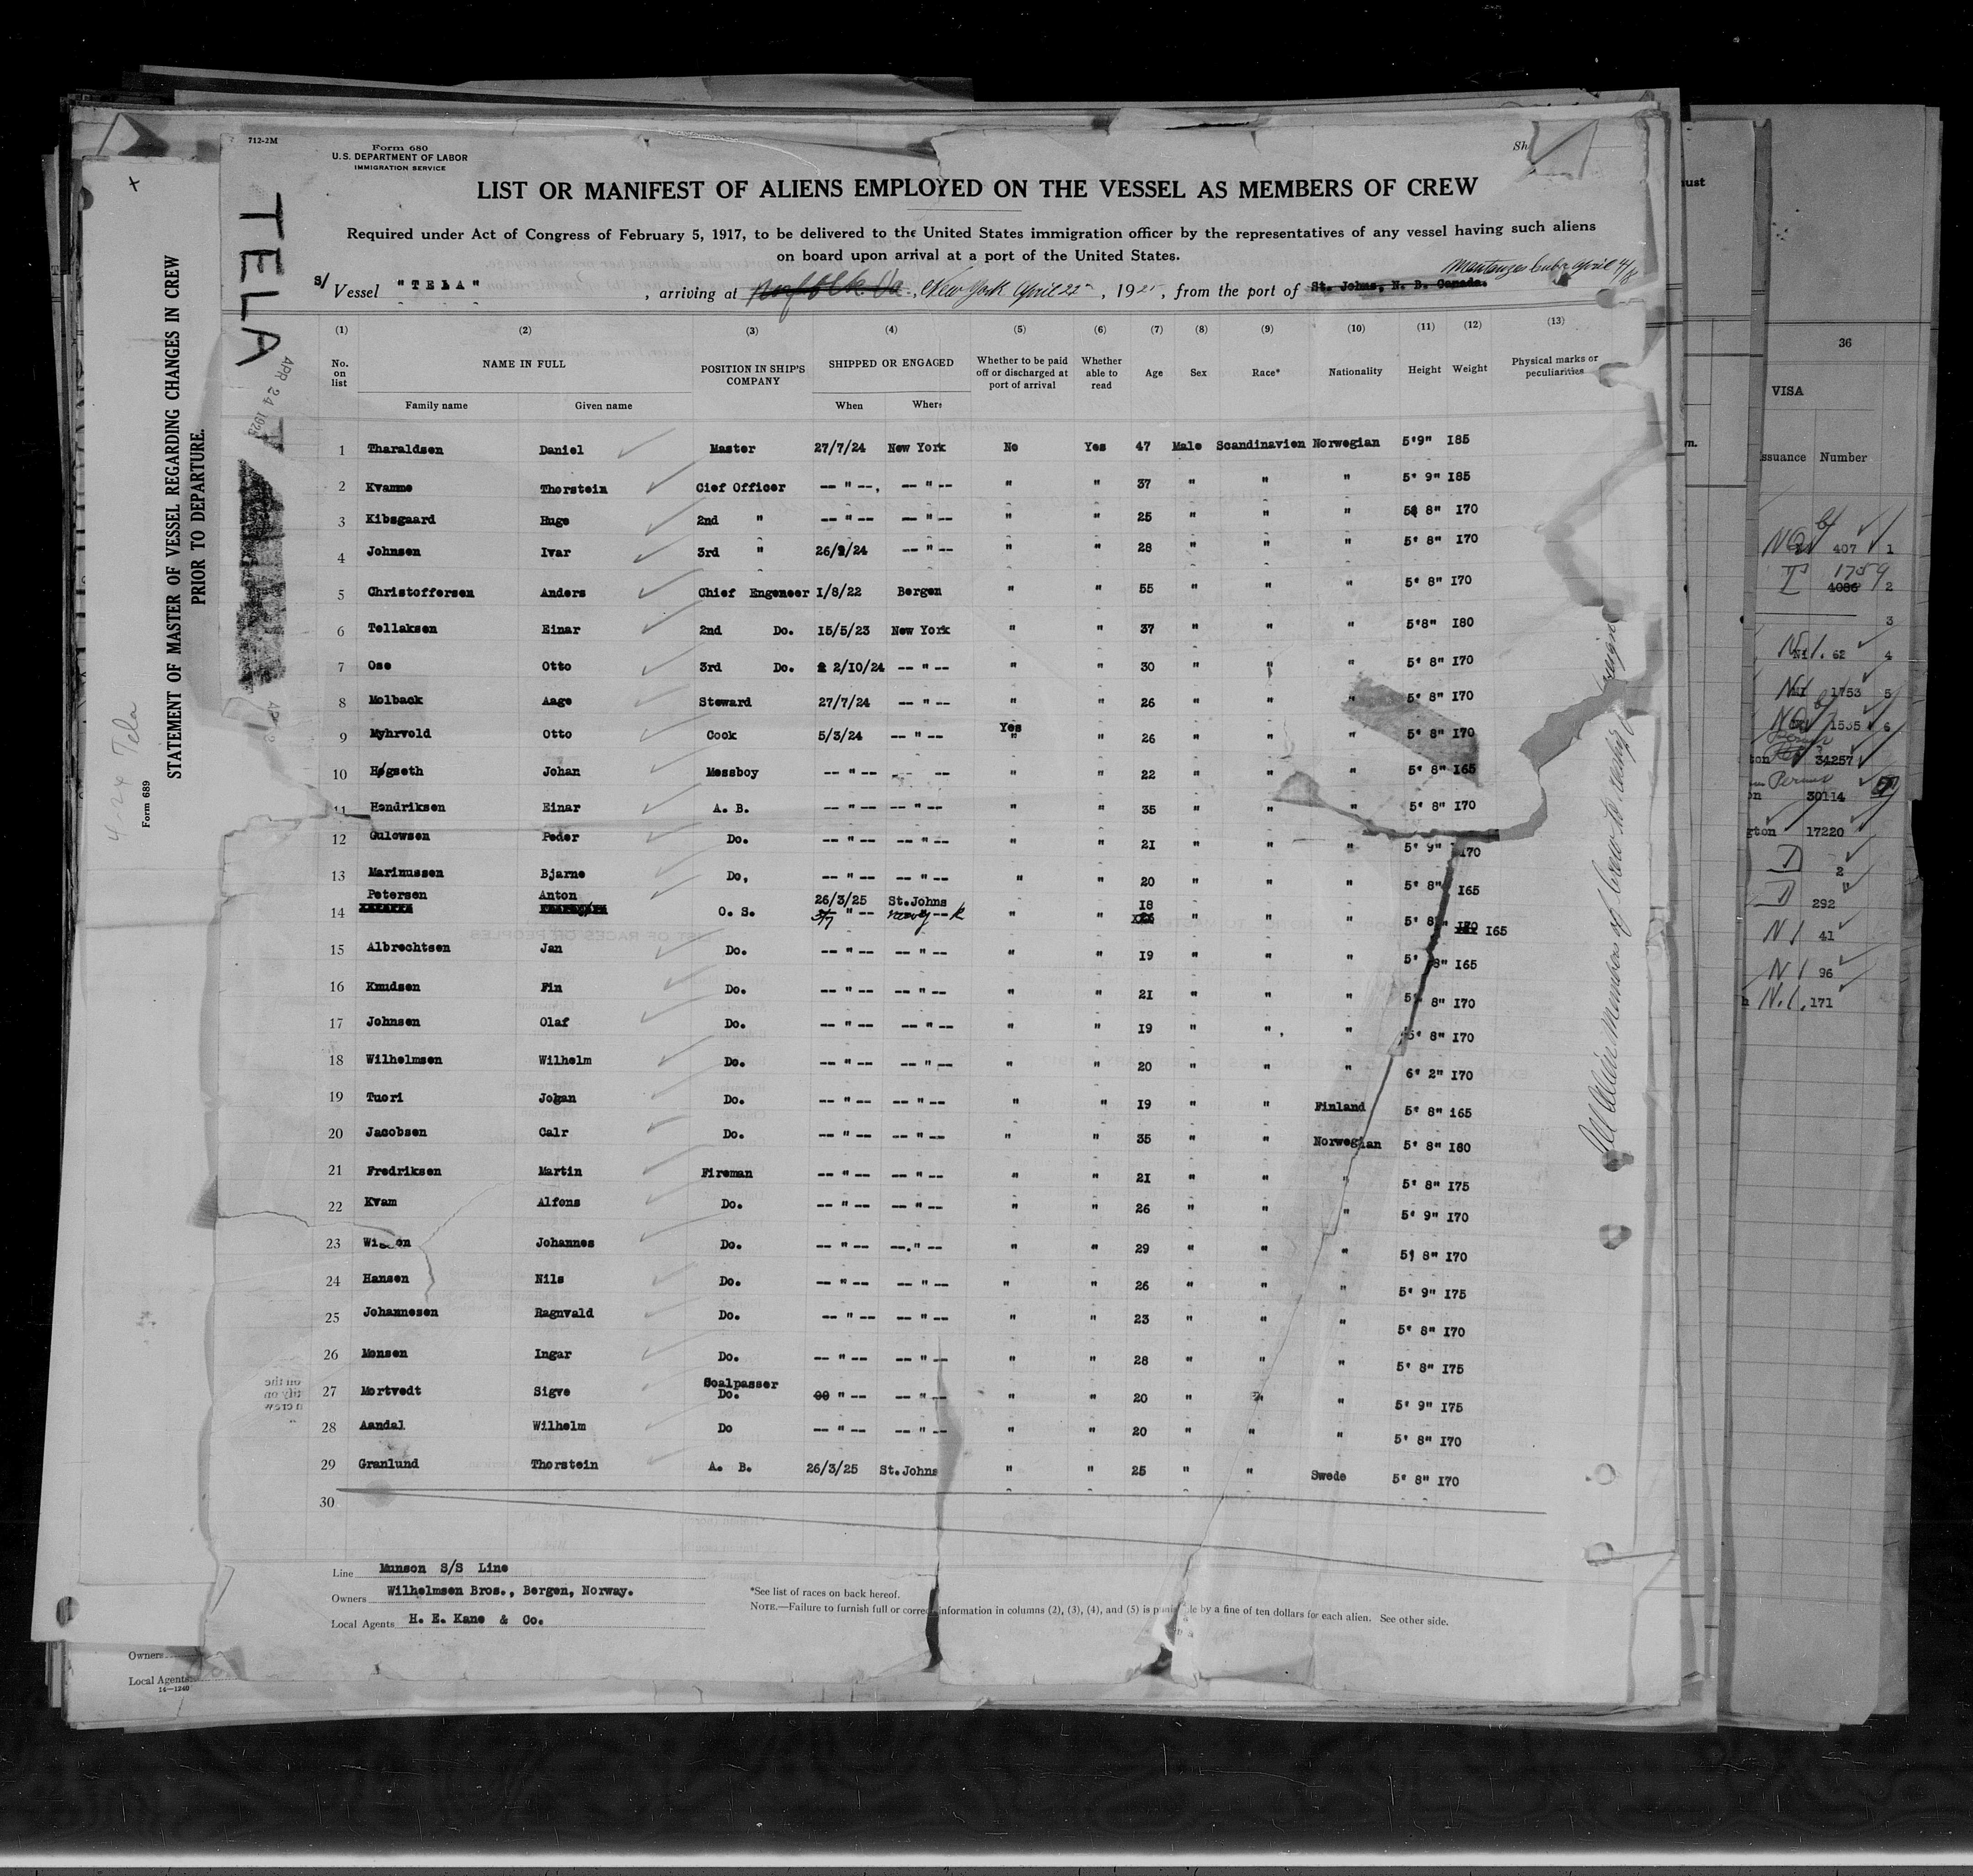 712-2M
Form 680
U.S. DEPARTMENT OF LABOR
IMMIGRATION SERVICE
Sh
TELA
APR 24 1925
LIST OR MANIFEST OF ALIENS EMPLOYED ON THE VESSEL AS MEMBERS OF CREW
Required under Act of Congress of February 5, 1917, to be delivered to the United States immigration officer by the representatives of any vessel having such aliens
on board upon arrival at a port of the United States.
Matanzas Cuba April 4/18
S/ Vessel "TELA", arriving at Norfolk Va., New York April 22, 1925, from the port of St. Johns, N. B. Canada.
(1) (2) (3) (4) (5) (6) (7) (8) (9) (10) (11) (12) (13)
No. on list NAME IN FULL POSITION IN SHIP'S COMPANY SHIPPED OR ENGAGED Whether to be paid off or discharged at port of arrival Whether able to read Age Sex Race* Nationality Height Weight Physical marks or peculiarities
Family name Given name When Where
1 Tharaldsen Daniel Master 27/7/24 New York No Yes 47 Male Scandinavien Norwegian 5'9" I85
2 Kvamme Thorstein Cief Officer -- " --, -- " -- " " 37 " " " 5' 9" I85
3 Kibsgaard Huge 2nd " -- " -- -- " -- " " 25 " " " 5' 8" I70
4 Johnsen Ivar 3rd " 26/9/24 -- " -- " " 28 " " " 5' 8" I70
5 Christoffersen Anders Chief Engeneer I/8/22 Bergen " " 55 " " " 5' 8" I70
6 Tellaksen Einar 2nd Do. I5/5/23 New York " " 37 " " " 5'8" I80
7 Ose Otto 3rd Do. 2/10/24 -- " -- " " 30 " " " 5' 8" I70
8 Molback Aage Steward 27/7/24 -- " -- " " 26 " " " 5' 8" I70
9 Myhrvold Otto Cook 5/3/24 -- " -- Yes " " 26 " " " 5' 8" I70
10 Høgseth Johan Messboy -- " -- -- -- " " 22 " " " 5' 8" I65
11 Hendriksen Einar A. B. -- " -- -- " -- " " 35 " " " 5' 8" I70
12 Gulowsen Peder Do. -- " -- -- " -- " " 2I " " " 5' 9" I70
13 Marinussen Bjarne Do, -- " -- -- " -- " " 20 " " " 5' 8" I65
Petersen Anton 26/3/25 St.Johns I8
14 O. S. " -- " " " " " 5' 8" I65
15 Albrechtsen Jan Do. -- " -- -- " -- " " I9 " " " 5' 8" I65
16 Knudsen Fin Do. -- " -- -- " -- " " 2I " " " 5' 8" I70
17 Johnsen Olaf Do. -- " -- -- " -- " " I9 " " " 5' 8" I70
18 Wilhelmsen Wilhelm Do. -- " -- -- " -- " " 20 " " " 6' 2" I70
19 Tuori Johan Do. -- " -- -- " -- " " I9 " " Finland 5' 8" i65
20 Jacobsen Calr Do. -- " -- -- " -- " " 35 " " Norwegian 5' 8" I80
21 Fredriksen Martin Fireman -- " -- -- " -- " " 2I " " " 5' 8" I75
22 Kvam Alfons Do. -- " -- -- " -- " " 26 " " " 5' 9" I70
23 Johannes Do. -- " -- --." -- " " 29 " " " 5' 8" I70
24 Hansen Nils Do. -- " -- -- " -- " " 26 " " " 5' 9" I75
25 Johannesen Ragnvald Do. -- " -- -- " -- " " 23 " " " 5' 8" I70
26 Monsen Ingar Do. -- " -- -- " -- " " 28 " " " 5' 8" I75
27 Mortvedt Sigve Coalpasser Do. " -- -- " -- " " 20 " " " 5' 9" I75
28 Aandal Wilhelm Do -- " -- -- " -- " " 20 " " " 5' 8" I70
29 Granlund Thorstein A. B. 26/3/25 St.Johns " " 25 " " Swede 5' 8" I70
30
Line Munson S/S Line
Owners Wilhelmsen Bros., Bergen, Norway.
Local Agents H. E. Kane & Co.
*See list of races on back hereof.
NOTE.—Failure to furnish full or correct information in columns (2), (3), (4), and (5) is punishable by a fine of ten dollars for each alien. See other side.
All Alien Members of Crew
STATEMENT OF MASTER OF VESSEL REGARDING CHANGES IN CREW
PRIOR TO DEPARTURE.
Form 689
4-24 Tela
Owners
Local Agents
14—1240
36
VISA
ssuance Number
407 1
1759
4086 2
3
N1. 62 4
1753 5
1535 6
34257
30114
gton 17220
2
292
N1 41
N1 96
N.1. 171